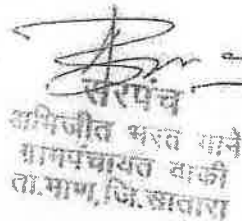 सरपंच
अभिजीत भरत
ग्रामपंचायत वाकी
ता.माण, जि.सातारा